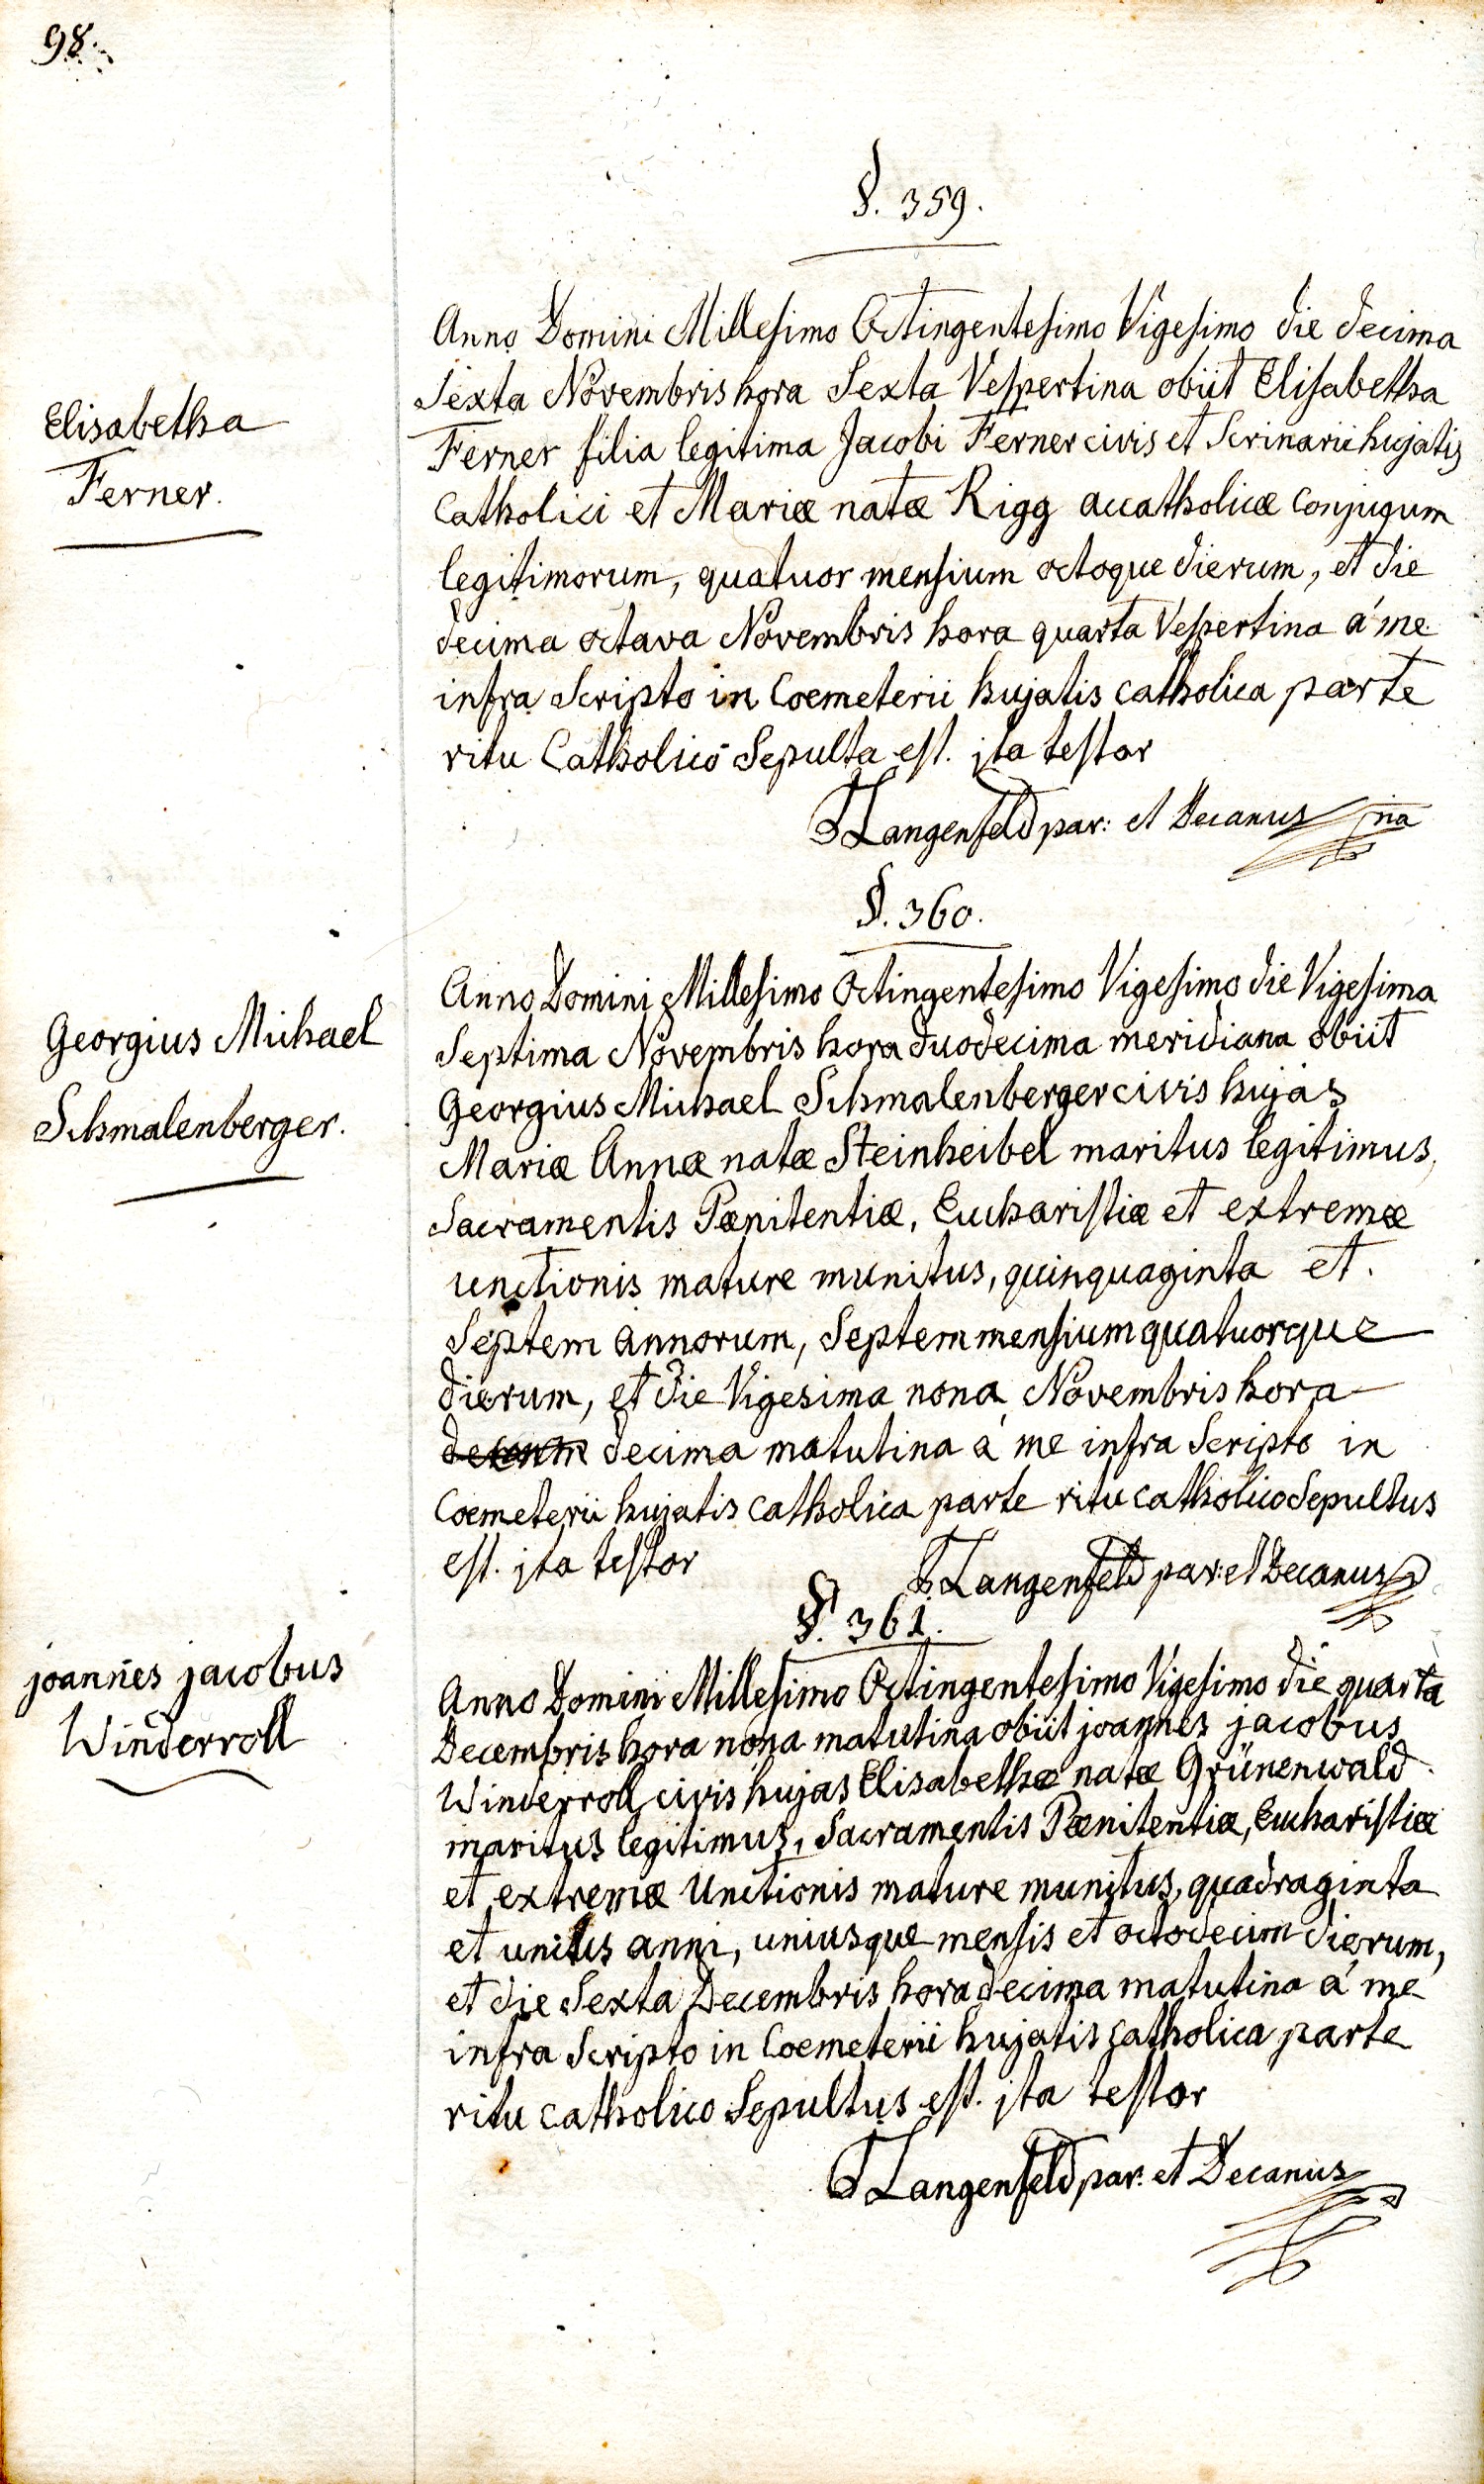 98.
§. 359.
Elisabetha
Ferner.
Anno Domini Millesimo Octingentesimo Vigesimo die decima
Sexta Novembris hora Sexta Vespertina obiit Elisabetha
Ferner filia legitima Jacobi Ferner civis et Scrinarii hujatis
Catholici et Mariæ natæ Rigg acatholicæ conjugum
legitimorum, quatuor mensium octoque dierum, et die
decima octava Novembris hora quarta Vespertina á me
infra Scripto in Coemeterii hujatis catholica parte
ritu Catholico Sepulta est. ita testor
Langenfeld par: et Decanus
§. 360.
Georgius Michael
Schmalenberger.
Anno Domini Millesimo Octingentesimo Vigesimo die Vigesima
Septima Novembris hora duodecima meridiana obiit
Georgius Michael Schmalenberger civis hujas
Mariæ Annæ natæ Steinheibel maritus legitimus,
Sacramentis Pænitentiæ, Eucharistiæ et extremæ
unctionis mature munitus, quinquaginta et.
Septem annorum, Septem mensium quatuorque
dierum, et die Vigesima nona Novembris hora
decima matutina á me infra Scripto in
Coemeterii hujatis catholica parte ritu catholico Sepultus
est. ita testor
Langenfeld par: et Decanus
§. 361.
joannes jacobus
Winderroll
Anno Domini Millesimo Octingentesimo Vigesimo die quarta
Decembris hora nona matutina obiit joannes jacobus
Winderroll civis hujas Elisabethæ natæ Grünenwald
maritus legitimus, Sacramentis Pænitentiæ, Eucharistiæ
et extremæ Unctionis mature munitus, quadraginta
et unius anni, uniusque mensis et octodecim dierum,
et die Sexta Decembris hora decima matutina á me
infra Scripto in Coemeterii hujatis catholica parte
ritu catholico Sepultus est. ita testor
Langenfeld par: et Decanus